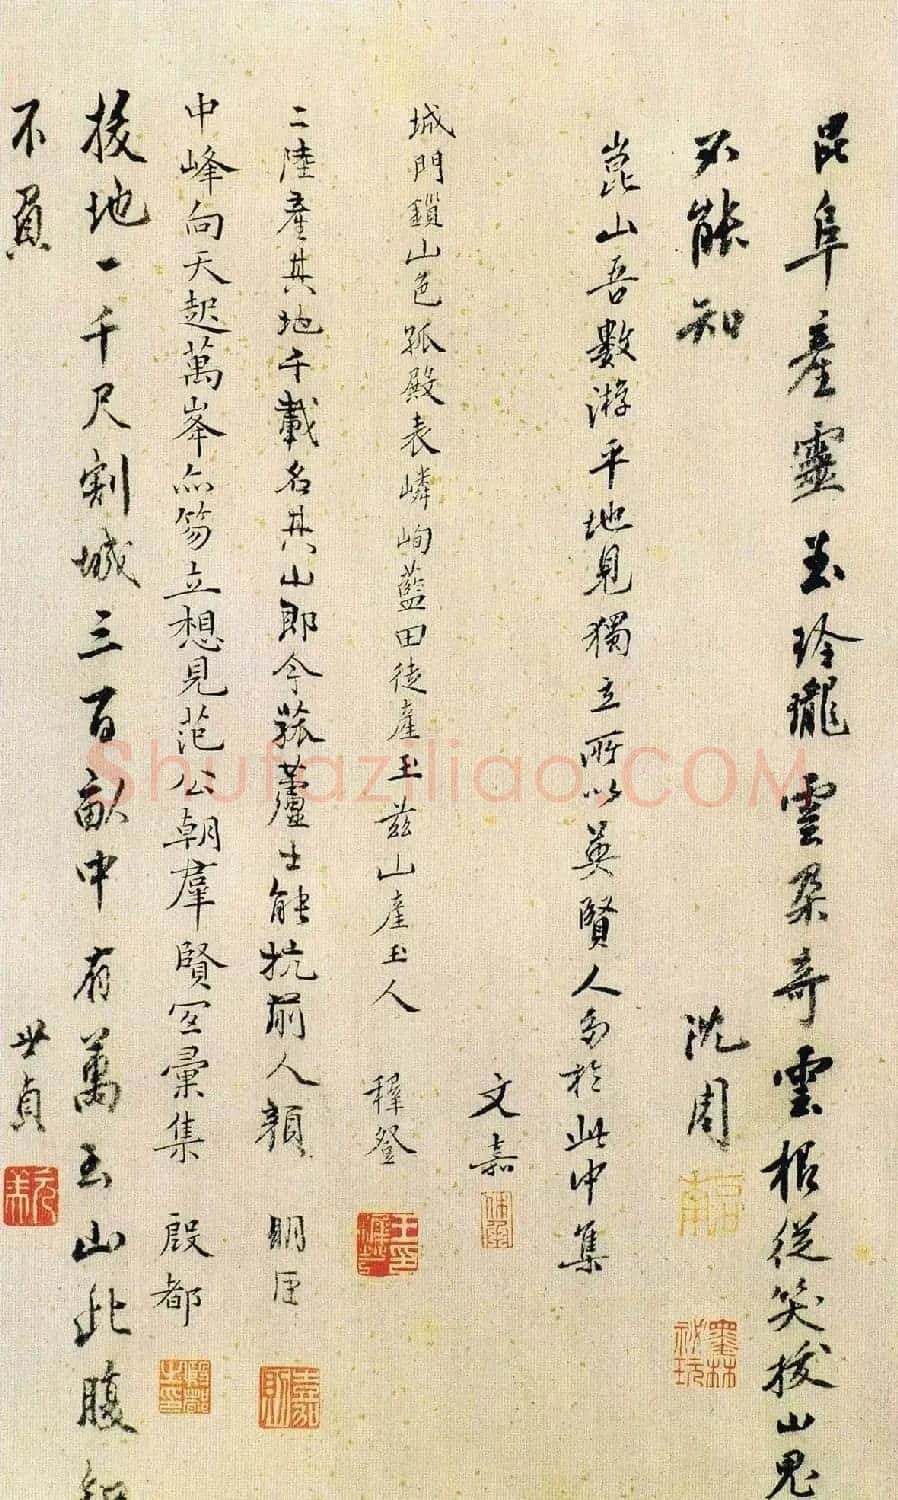 昆阜産靈玉玲瓏雲朶奇雲根從笑拔山鬼
不能知
沈周
崑山吾數游平地見獨立所以英賢人多於此中集
文嘉
城門鎖山色孤殿表嶙峋藍田徒産玉兹山産玉人
穉登
二陸產其地千載名其山即今菰蘆士能抗前人顔
明臣
中峰向天起萬峯亦笏立想見范公朝羣賢罡彙集
殷都
拔地一千尺割城三百畝中有萬玉山此腹知
不負
世貞
Shufaziliao.COM